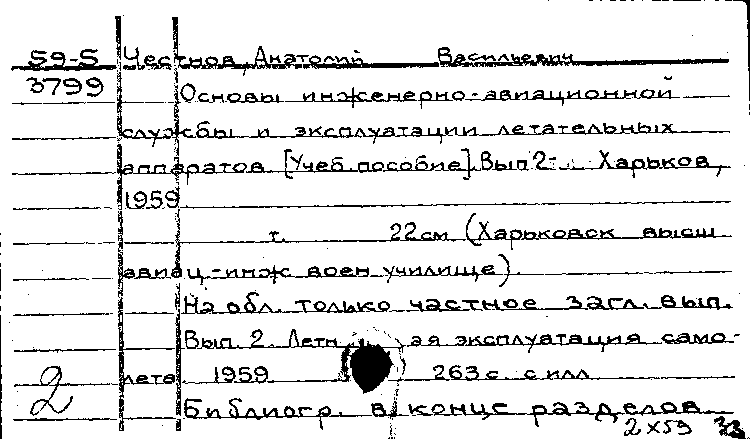 59-5 Честнов, Анатолий Васильевич
3799 Основы инженерно-авиационной
службы и эксплуатации летательных
аппаратов [Учеб. пособие]. Вып 2-. Харьков,
1959
т. 22 см (Харьковск высш
авиац-инж воен училище).
На обл. только частное загл. вып.
Вып. 2. Летн ая эксплуатация само-
лета 1959 263 с. с илл
2 Библиогр. в конце разделов
2 x 59